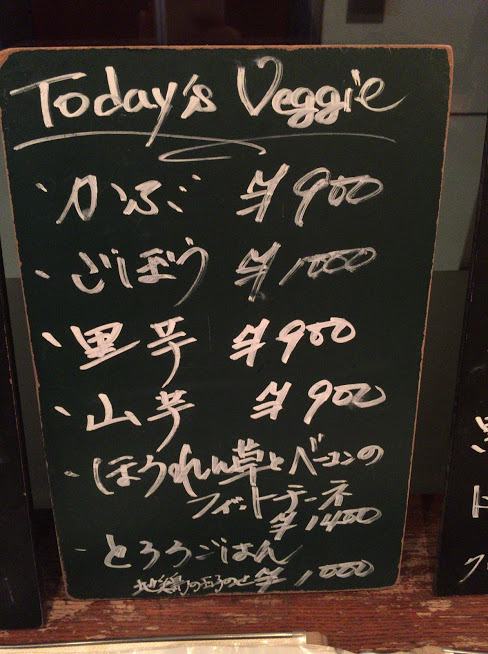 Today's Veggie
・かぶ ¥900
・ごぼう ¥1000
・里芋 ¥900
・山芋 ¥900
・ほうれん草とベーコンの
フィットチーネ
¥1400
・とろろごはん
地鶏の玉子のせ ¥1,000